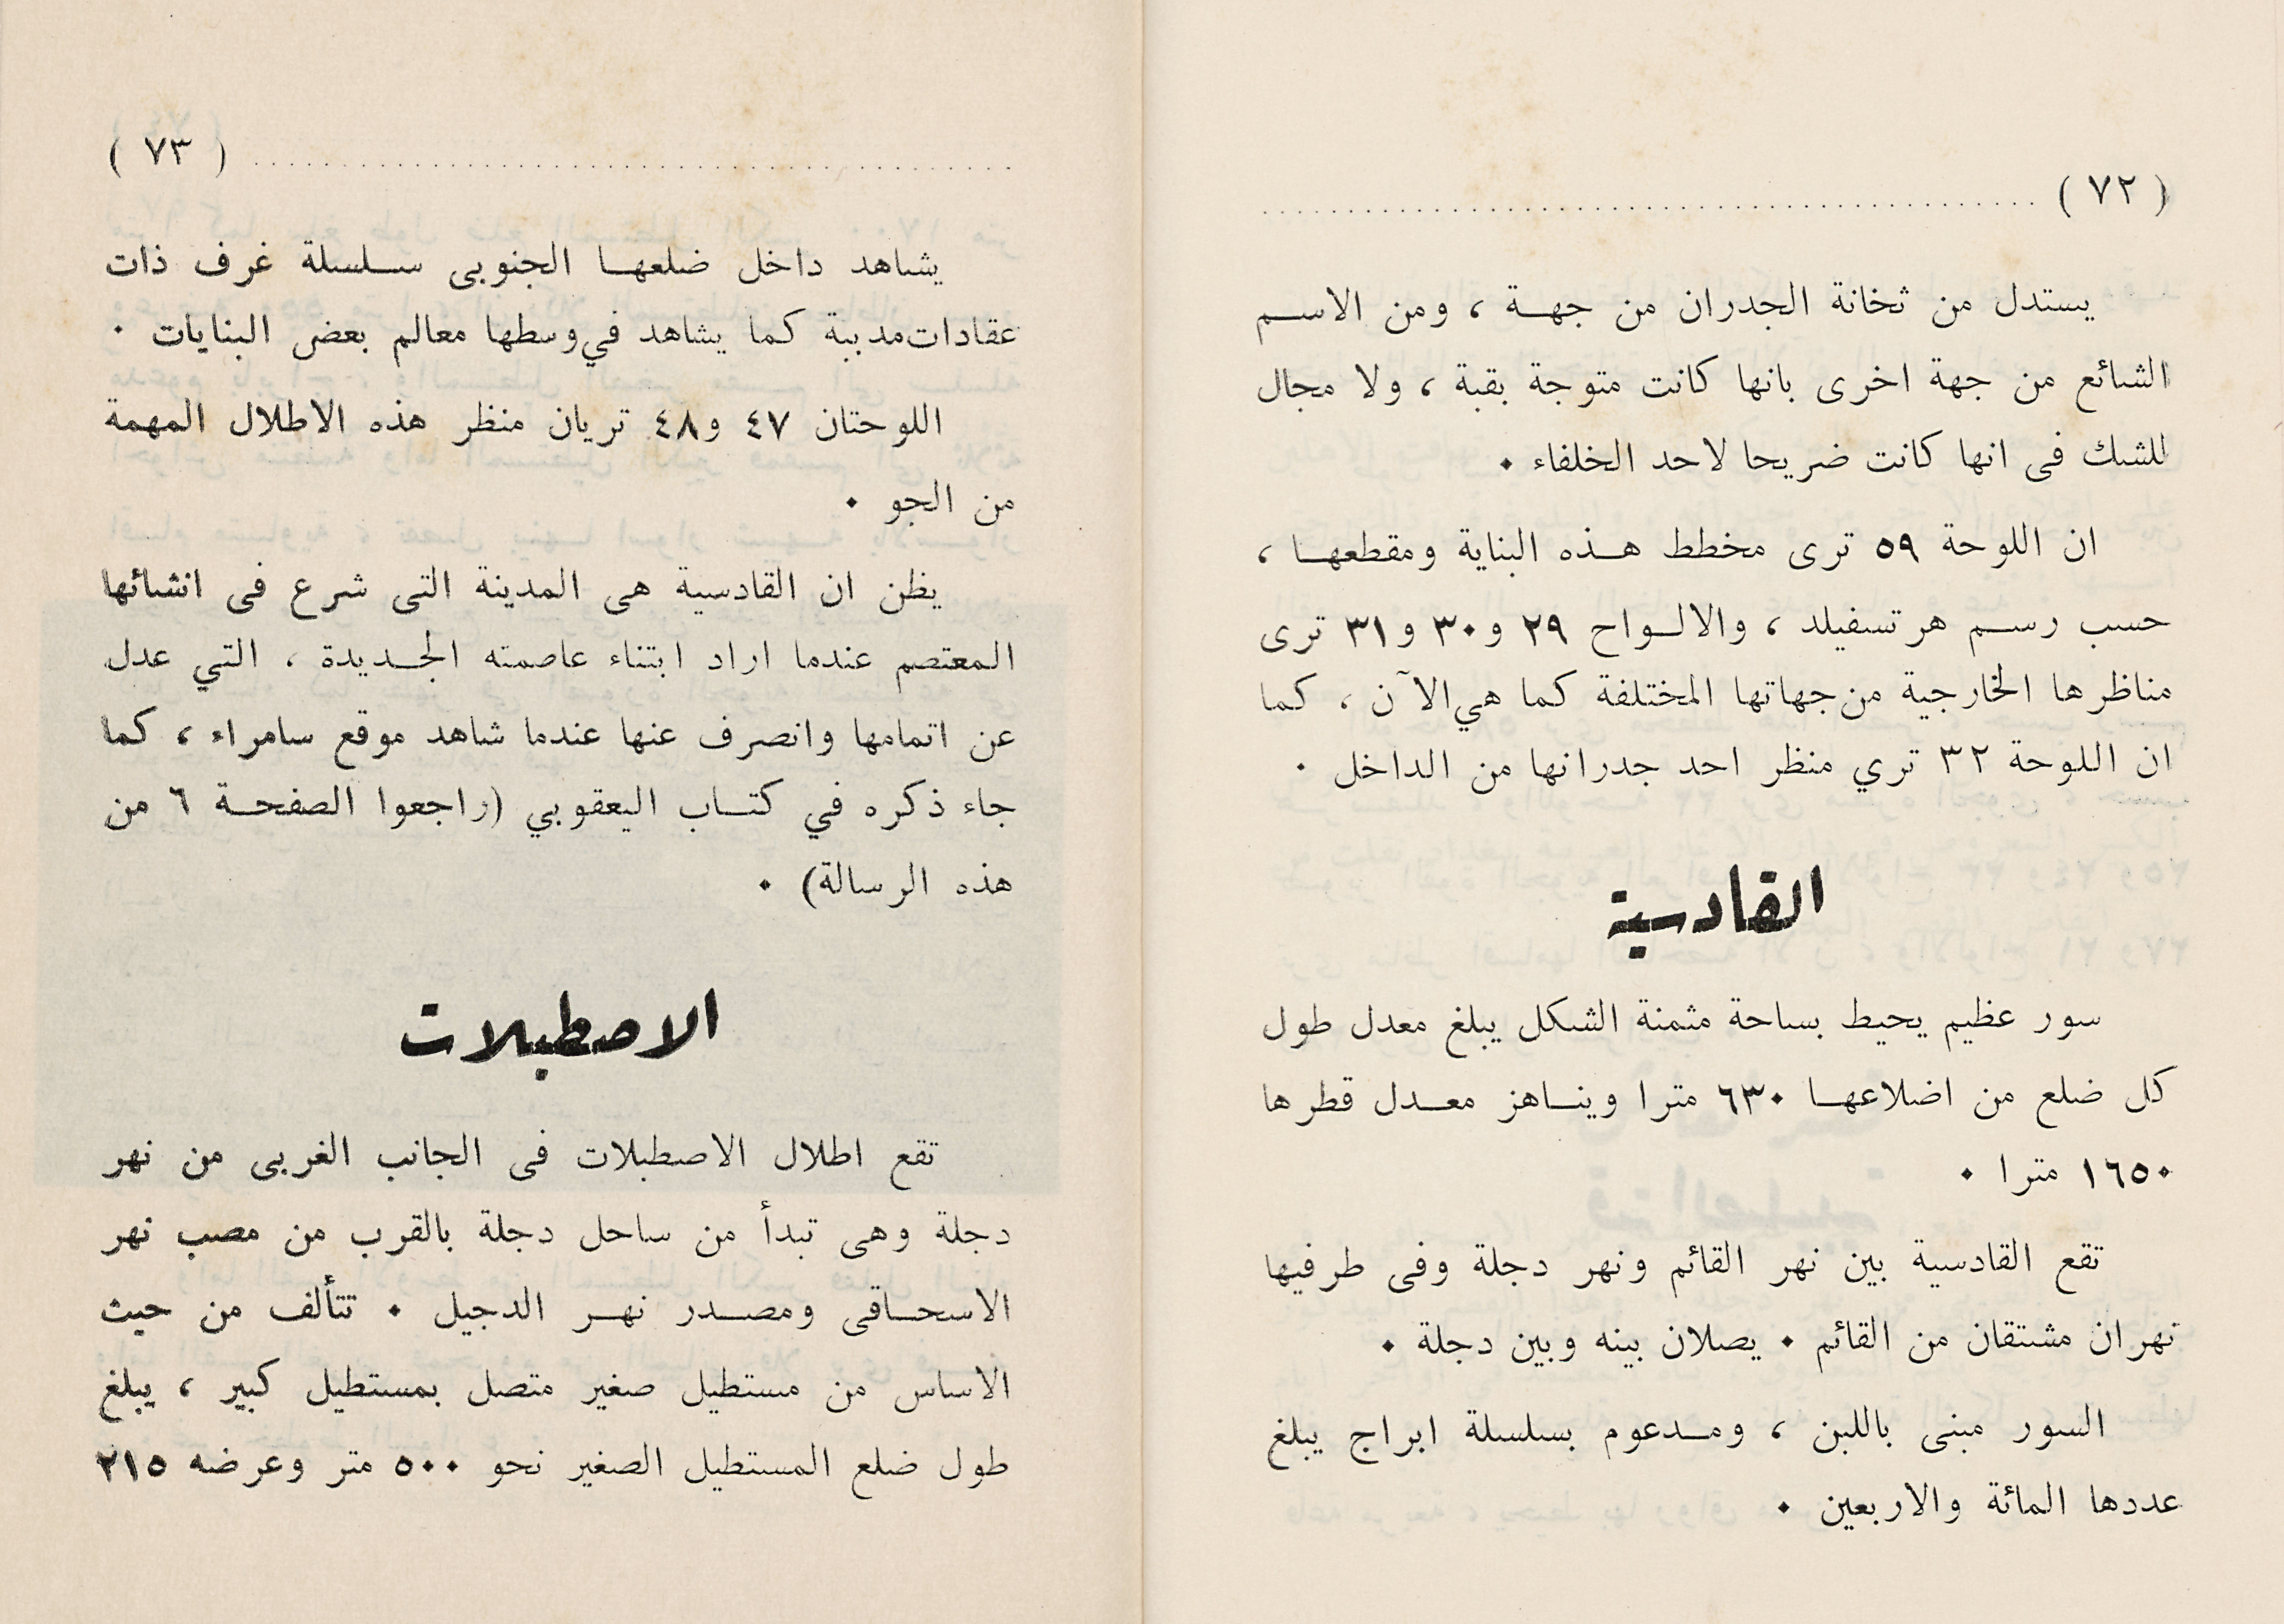 ( ٧٢ ) ........................................................
يستدل من ثخانة الجدران من جهة ، ومن الاسم
الشائع من جهة اخرى بانها كانت متوجة بقبة ، ولا مجال
للشك فى انها كانت ضريحا لاحد الخلفاء ٠
ان اللوحة ٥٩ ترى مخطط هذه البناية ومقطعها ،
حسب رسم هرتسفيلد ، والالواح ٢٩ و٣٠ و٣١ ترى
مناظرها الخارجية من جهاتها المختلفة كما هي الآن ، كما
ان اللوحة ٣٢ تري منظر احد جدرانها من الداخل ٠
القادسية
سور عظيم يحيط بساحة مثمنة الشكل يبلغ معدل طول
كل ضلع من اضلاعها ٦٣٠ مترا ويناهز معدل قطرها
١٦٥٠ مترا ٠
تقع القادسية بين نهر القائم ونهر دجلة وفى طرفيها
نهران مشتقان من القائم ٠ يصلان بينه وبين دجلة ٠
السور مبنى باللبن ، ومدعوم بسلسلة ابراج يبلغ
عددها المائة والاربعين ٠
( ٧٣ ) ........................................................
يشاهد داخل ضلعها الجنوبى سلسلة غرف ذات
عقادات مدببة كما يشاهد في وسطها معالم بعض البنايات ٠
اللوحتان ٤٧ و٤٨ تريان منظر هذه الاطلال المهمة
من الجو ٠
يظن ان القادسية هى المدينة التى شرع فى انشائها
المعتصم عندما اراد ابتناء عاصمته الجديدة ، التي عدل
عن اتمامها وانصرف عنها عندما شاهد موقع سامراء ، كما
جاء ذكره في كتاب اليعقوبي (راجعوا الصفحة ٦ من
هذه الرسالة) ٠
الاصطبلات
تقع اطلال الاصطبلات فى الجانب الغربى من نهر
دجلة وهى تبدأ من ساحل دجلة بالقرب من مصب نهر
الاسحاقى ومصدر نهر الدجيل ٠ تتألف من حيث
الاساس من مستطيل صغير متصل بمستطيل كبير ، يبلغ
طول ضلع المستطيل الصغير نحو ٥٠٠ متر وعرضه ٢١٥